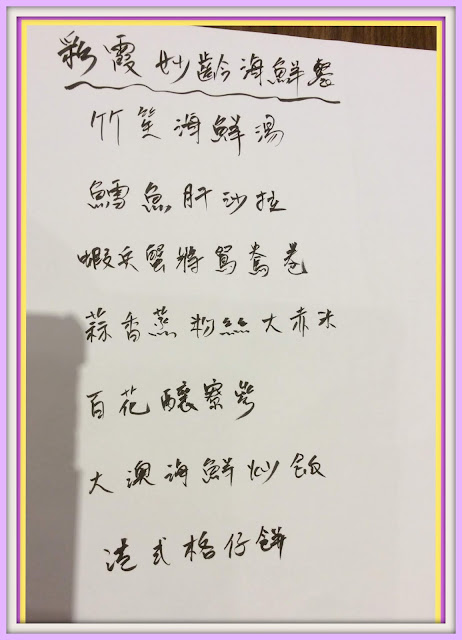 彩霞妙齡海鮮餐
竹笙海鮮湯
鱈魚肝沙拉
蝦兵蟹將鴛鴦卷
蒜香蒸粉絲大赤米
百花釀
大澳海鮮炒飯
法式格仔餅